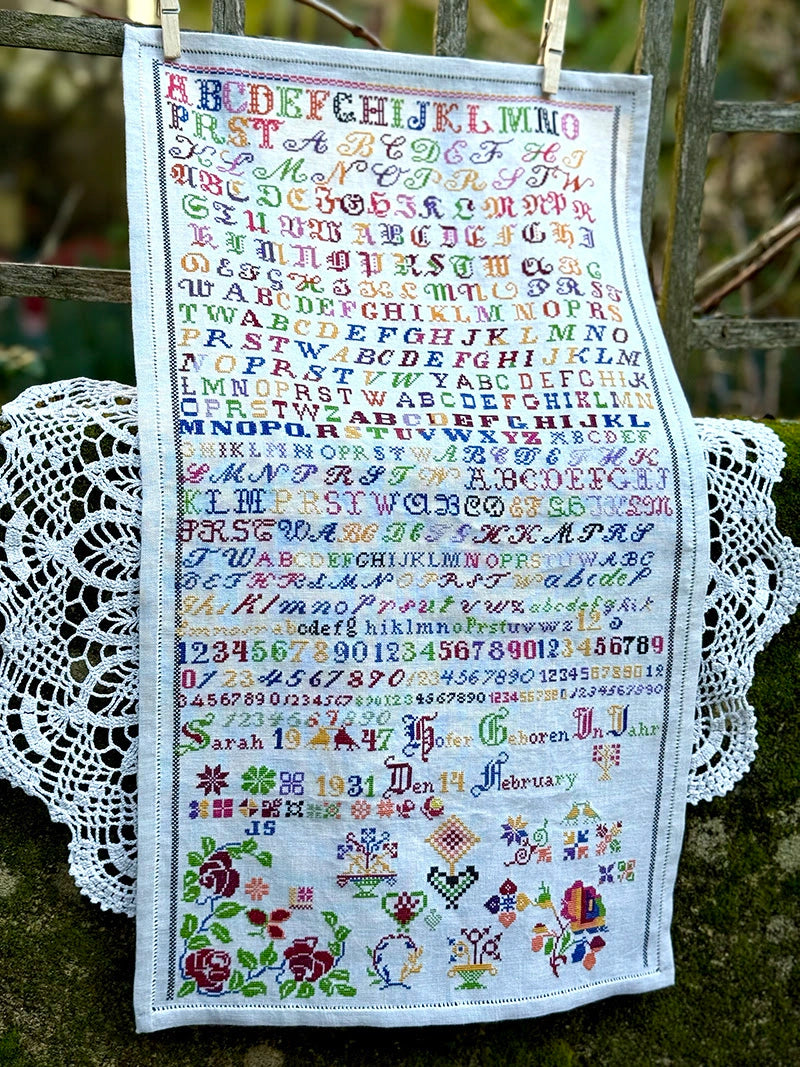 ABCDEFGHIJKLMNO
PRST ABCDEFHI
KLMNOPRSTW
ABCDEFGHIKLMNPR
STUVWABCDEFGHI
KLMNOPRSTWABC
DEFGHIKLMNOPRST
WABCDEFGHIKLMNOPRS
TWABCDEFGHJKLMNO
PRSTWABCDEFGHIJKLM
NOPRSTVWYABCDEFGHIK
LMNOPRSTWABCDEFGHIKLMN
OPRSTWZABCDEFGHIJKL
MNOPQ.RSTUVWXYZABCDEF
GHIKLMNOPRSTWABCDEFHK
LMNPRSTWABCDEFGHJ
KLMPRSTWABCDEFGHIKLM
PRSTWABCDEFGHKMPRS
TWABCDEFGHIJKLMNOPRSTUWABC
DEFHKLMNOPRSTWabcdef
ghiklmnoprsutvwzabcdefghik
lmnoprabcdefghiklmnoPrstuvwz12
1234567890123456789012345678 9
01234567890123456789012345678901 2
345678901234567890123456789012345678901234567890
1234567890
Sarah 1947 Hofer Geboren In Jahr
1931 Den 14 February
JS